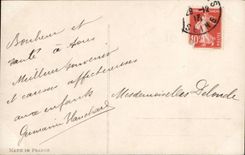 Bonheur et
santé à tous
Meilleur souvenir
et caresses affectueuses
aux enfants
Germain Blanchard
Mesdemoiselles Delonde
10
MADE IN FRANCE